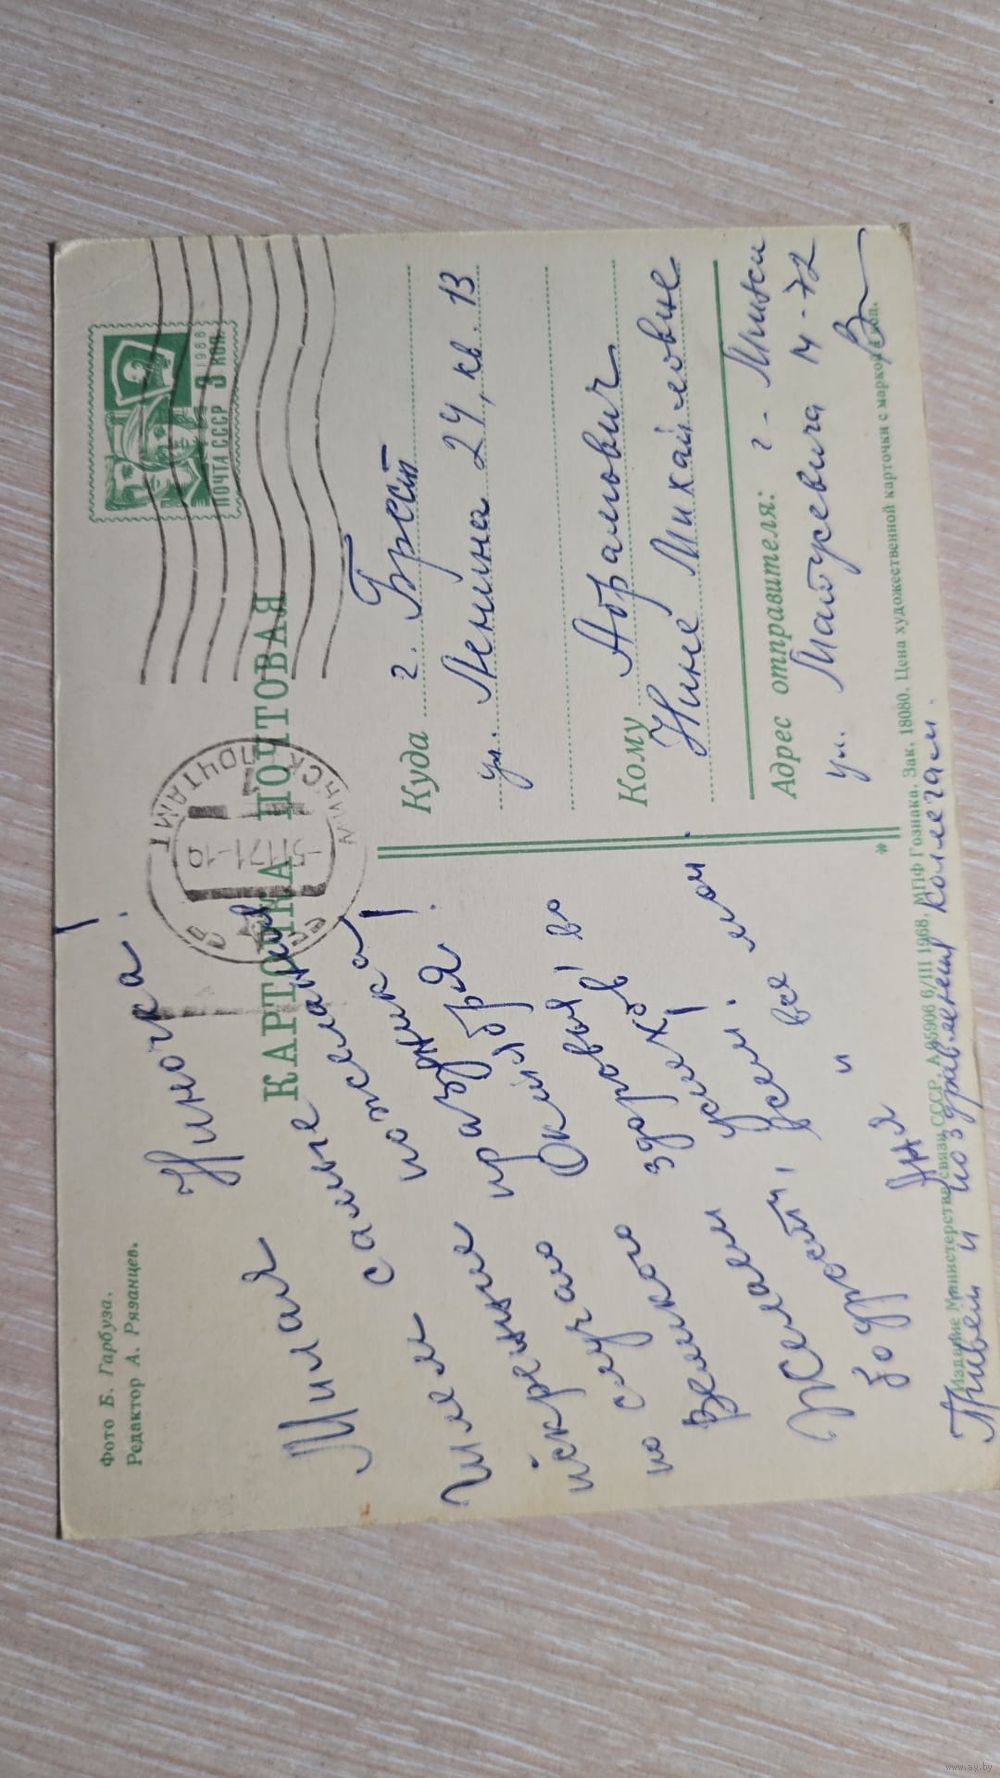 Фото Б. Гарбуза.
Редактор А. Рязанцев.
КАРТОЧКА ПОЧТОВАЯ
1966
ПОЧТА СССР 3 КОП.
МИНСК ПОЧТАМТ
Милая Ниночка!
Шлем самые
искренние пожелания!
по случаю праздника
Великого Октября!
Желаем здоровья, во
всем успехов!
бодрости, и
Привет и поздравления коллегам.
Куда г. Брест
ул. Ленина 24, кв. 13
Кому Абрамович
Нине Михайловне
Адрес отправителя: г. Минск
ул. Матусевича 14-72
Издание Министерства связи СССР. А 05906 6/III 1968. МПФ Гознака. Зак. 18080. Цена художественной карточки с маркой 4 коп.
www.ay.by